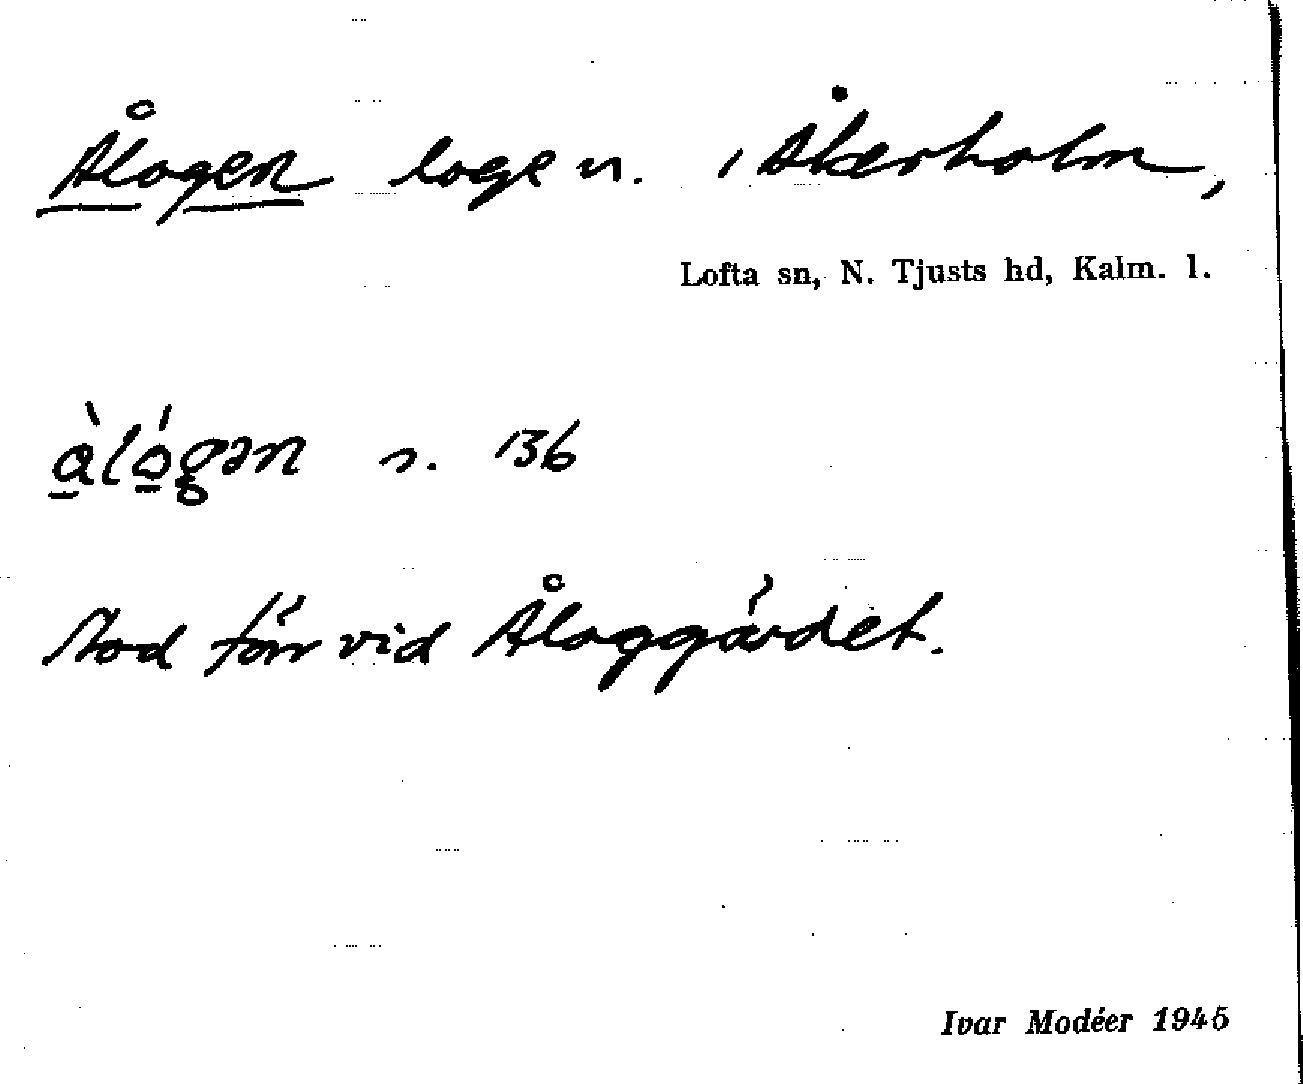 Ålogen loge n. i Åkerholm,
Lofta sn, N. Tjusts hd, Kalm. l.
s. 136
Stod förr vid Åloggärdet.
Ivar Modéer 1945